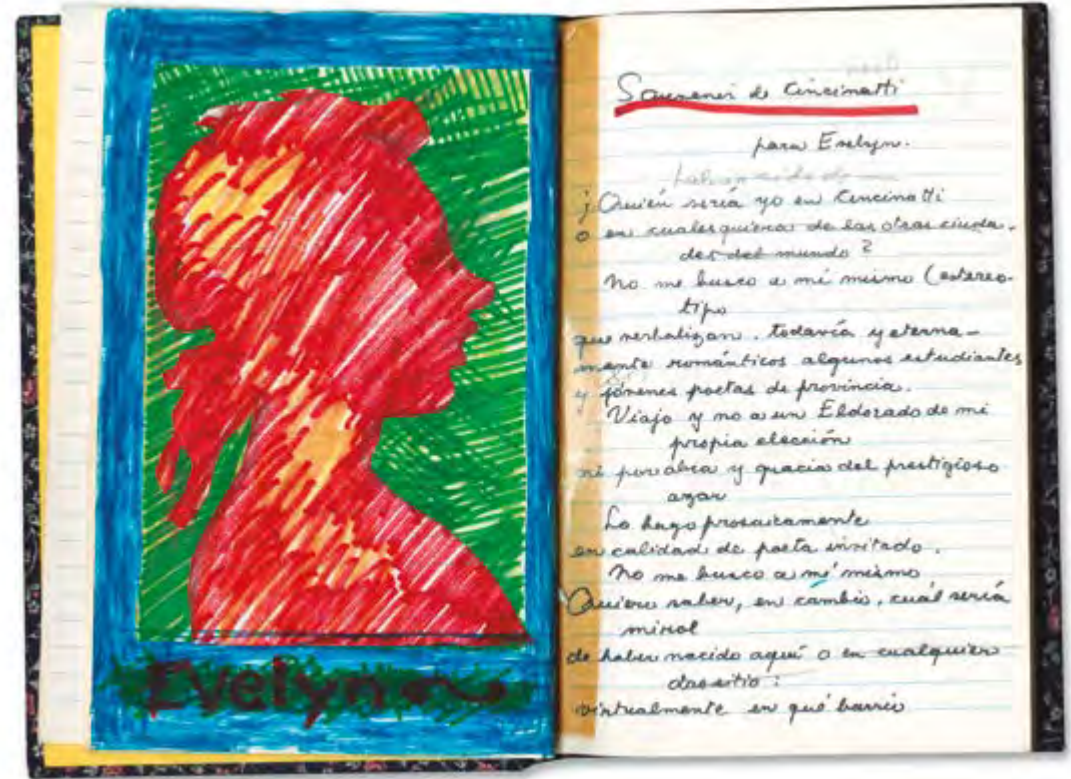 Evelyn
Souvenir de Cincinatti
para Evelyn.
¿Quién sería yo en Cincinatti
o en cualesquiera de las otras ciuda-
des del mundo?
No me busco a mí mismo (estereo-
tipo
que verbalizan, todavía y eterna-
mente románticos algunos estudiantes
y jóvenes poetas de provincia.
Viajo y no a un Eldorado de mi
propia elección
ni por obra y gracia del prestigioso
azar
Lo hago prosaicamente
en calidad de poeta invitado.
No me busco a mí mismo
Quiero saber, en cambio, cuál sería
mi rol
de haber nacido aquí o en cualquier
otro sitio:
virtualmente en qué barrio